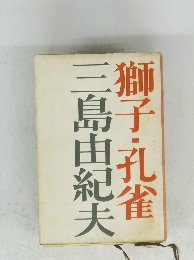 獅子・孔雀
三島由紀夫